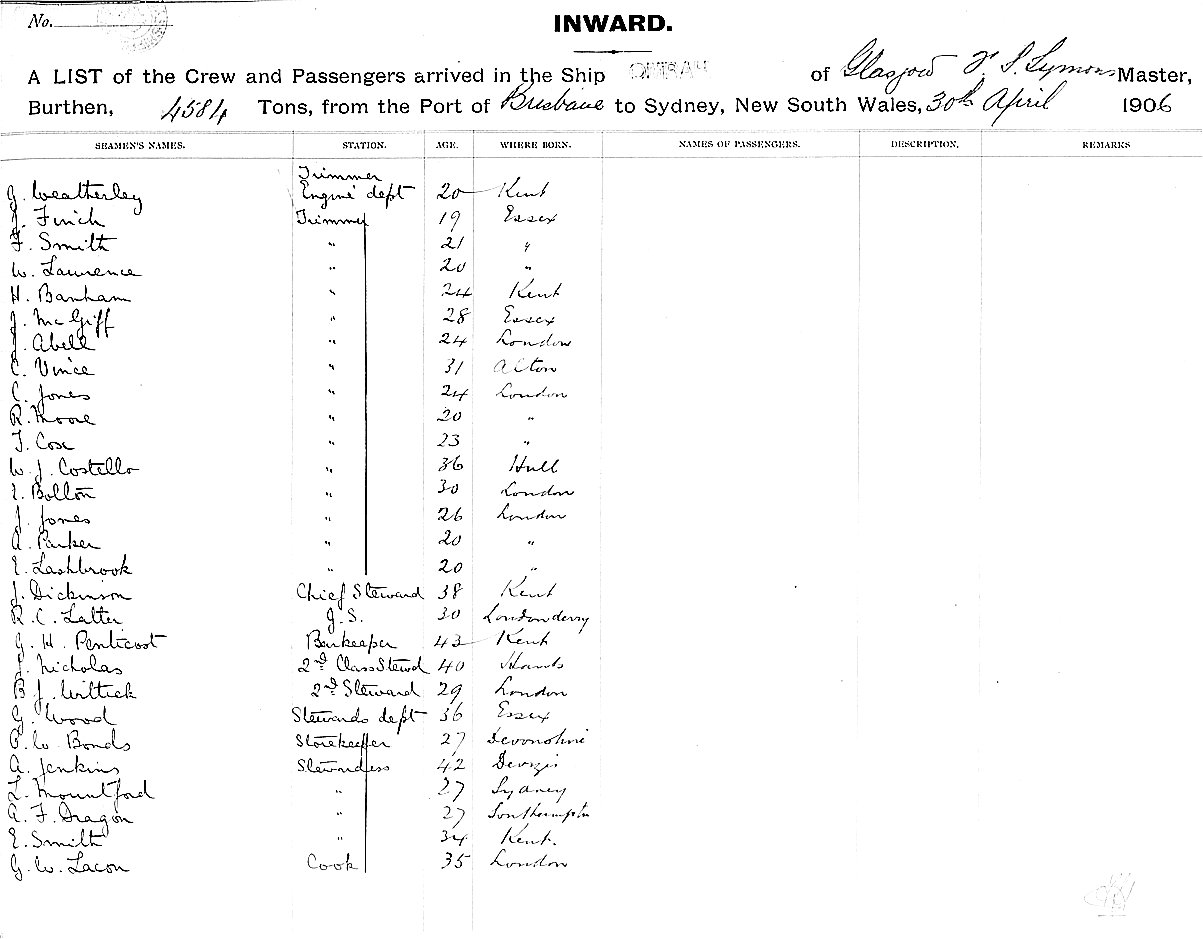 No.
INWARD.
A LIST of the Crew and Passengers arrived in the Ship OMRAH of Glasgow F. S. Symons Master,
Burthen, 4584 Tons, from the Port of Brisbane to Sydney, New South Wales, 30th April 1906
SEAMEN'S NAMES. STATION. AGE. WHERE BORN. NAMES OF PASSENGERS. DESCRIPTION. REMARKS
Trimmer
G. Weatherley Engine dept 20 Kent
J. Finch Trimmer 19 Essex
F. Smith " 21 "
W. Laurence " 20 "
H. Banham " 24 Kent
J. McGiff " 28 Essex
J. Abell " 24 London
C. Vince " 31 Alton
C. Jones " 24 London
R. Moore " 20 "
T. Cose " 23 "
W. J. Costello " 36 Hull
E. Bollon " 30 London
J. Jones " 26 London
A. Parker " 20 "
E. Lashbrook " 20 "
J. Dickinson Chief Steward 38 Kent
R. C. Latter J. S. 30 Londonderry
G. H. Penticost Barkeeper 43 Kent
J. Nicholas 2nd Class Stewd 40 Hants
B J. Wiltick 2nd Steward 29 London
G. Wood Stewards dept 36 Essex
P. W. Bonds Storekeeper 27 Devonshire
A. Jenkins Stewardess 42 Devizes
L. Mountford " 27 Sydney
A. F. Dragon " 27 Southampton
E. Smith " 34 Kent.
G. W. Lacon Cook 35 London